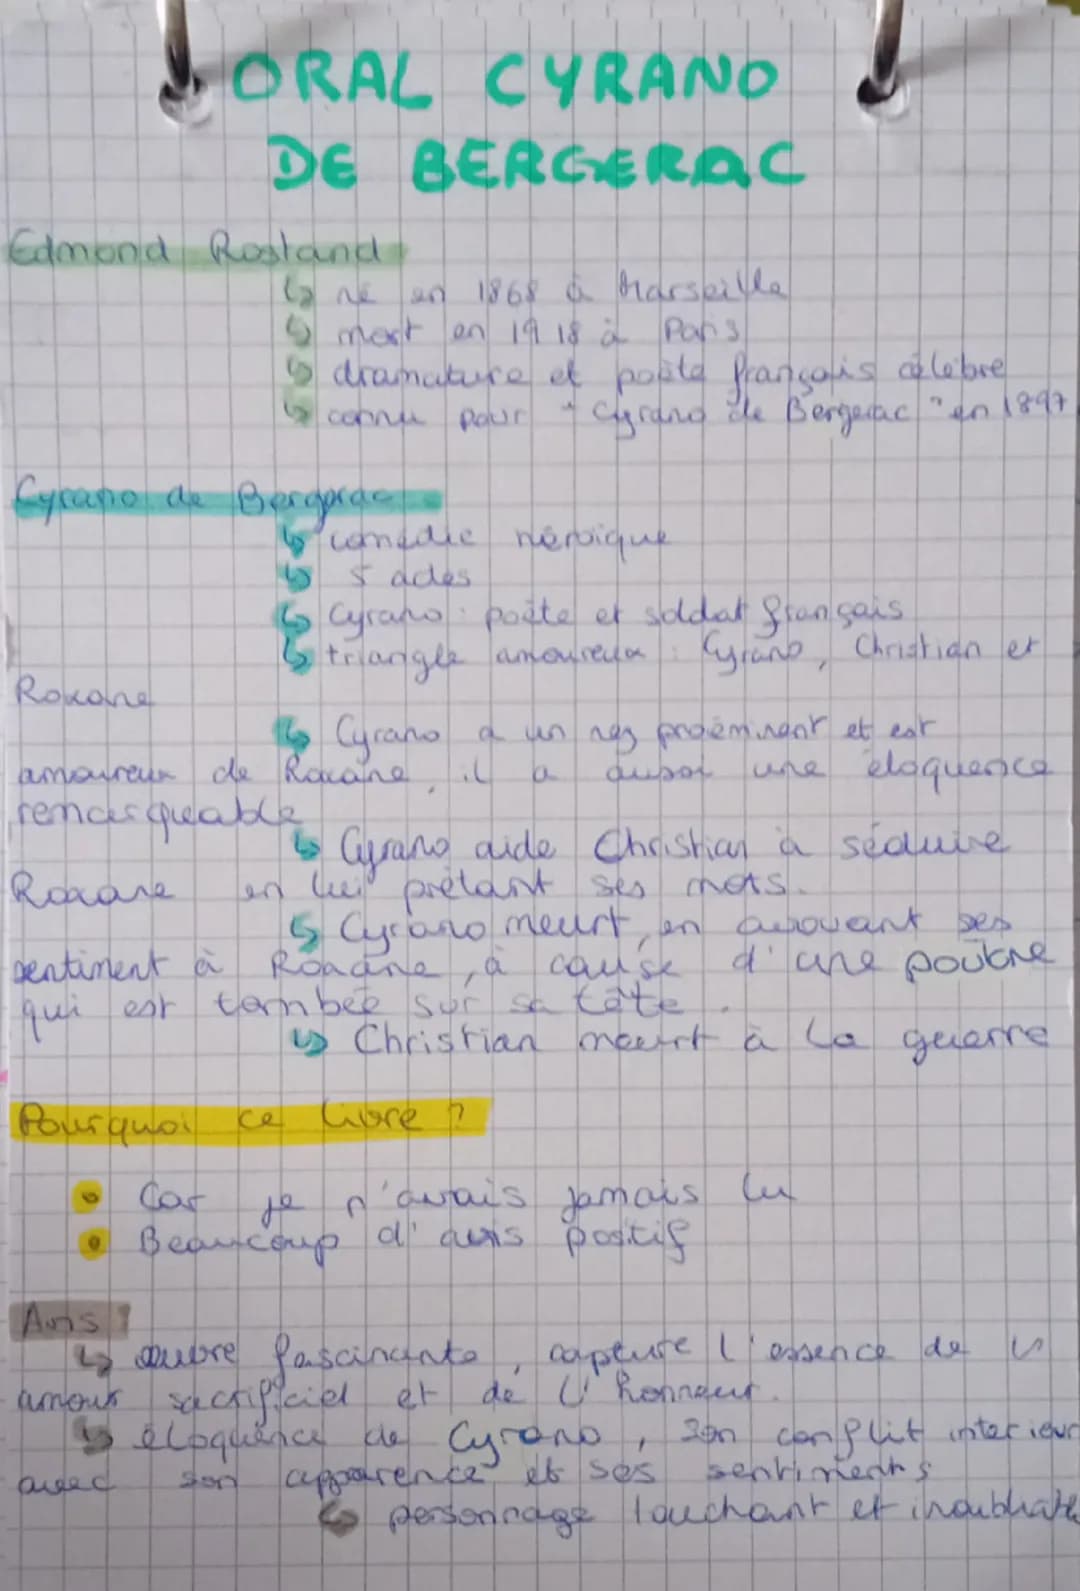 ORAL CYRANO
DE BERGERAC
Edmond Rostand
↳ né en 1868 à Marseille
↳ mort en 1918 à Paris
↳ dramature et poète français célèbre
↳ connu pour "Cyrano de Bergerac" en 1897
Cyrano de Bergerac
↳ comédie héroïque
↳ 5 actes
↳ Cyrano : poète et soldat français
↳ triangle amoureux : Cyrano, Christian et
Roxane
↳ Cyrano a un nez proéminent et est
amoureux de Roxane, il a aussi une éloquence
remarquable
↳ Cyrano aide Christian à séduire
Roxane en lui prêtant ses mots.
↳ Cyrano meurt, en avouant ses
sentiment à Roxane, à cause d'une poutre
qui est tombée sur sa tête.
↳ Christian meurt à la guerre
Pourquoi ce livre ?
• Car je n'avais jamais lu
• Beaucoup d'avis positif
Avis :
↳ œuvre fascinante, capture l'essence de l'
amour sacrificiel et de l'honneur.
↳ éloquence de Cyrano, son conflit interieur
avec son apparence et ses sentiments
↳ personnage touchant et inoubliable